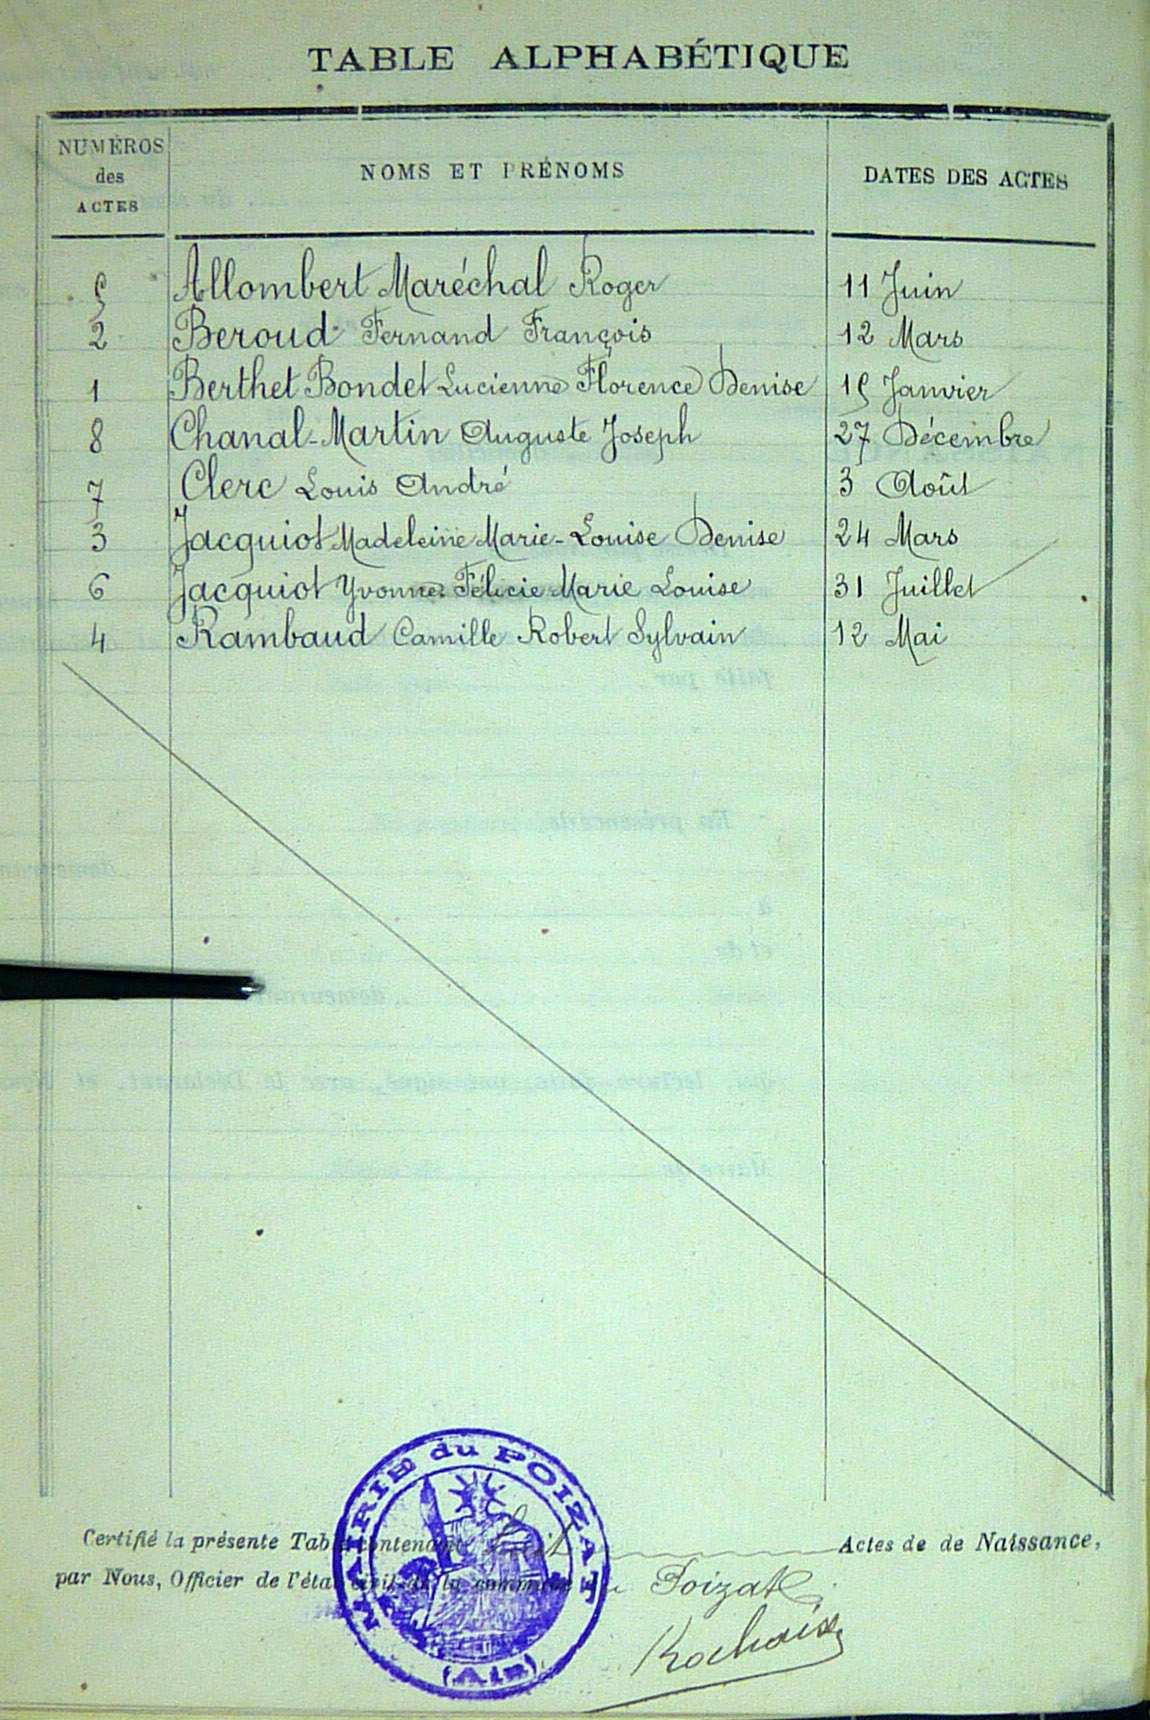 TABLE ALPHABÉTIQUE
NUMÉROS des ACTES NOMS ET PRÉNOMS DATES DES ACTES
5 Allombert Maréchal Roger 11 Juin
2 Beroud Fernand François 12 Mars
1 Berthet Bondet Lucienne Florence Denise 15 Janvier
8 Chanal-Martin Auguste Joseph 27 Décembre
7 Clerc Louis André 3 Août
3 Jacquiot Madeleine Marie-Louise Denise 24 Mars
6 Jacquiot Yvonne Félicie Marie Louise 31 Juillet
4 Rambaud Camille Robert Sylvain 12 Mai
MAIRIE du POIZAT
(Ain)
Certifié la présente Table contenant huit Actes de de Naissance,
par Nous, Officier de l'état civil de la commune du Poizat
Rochaix